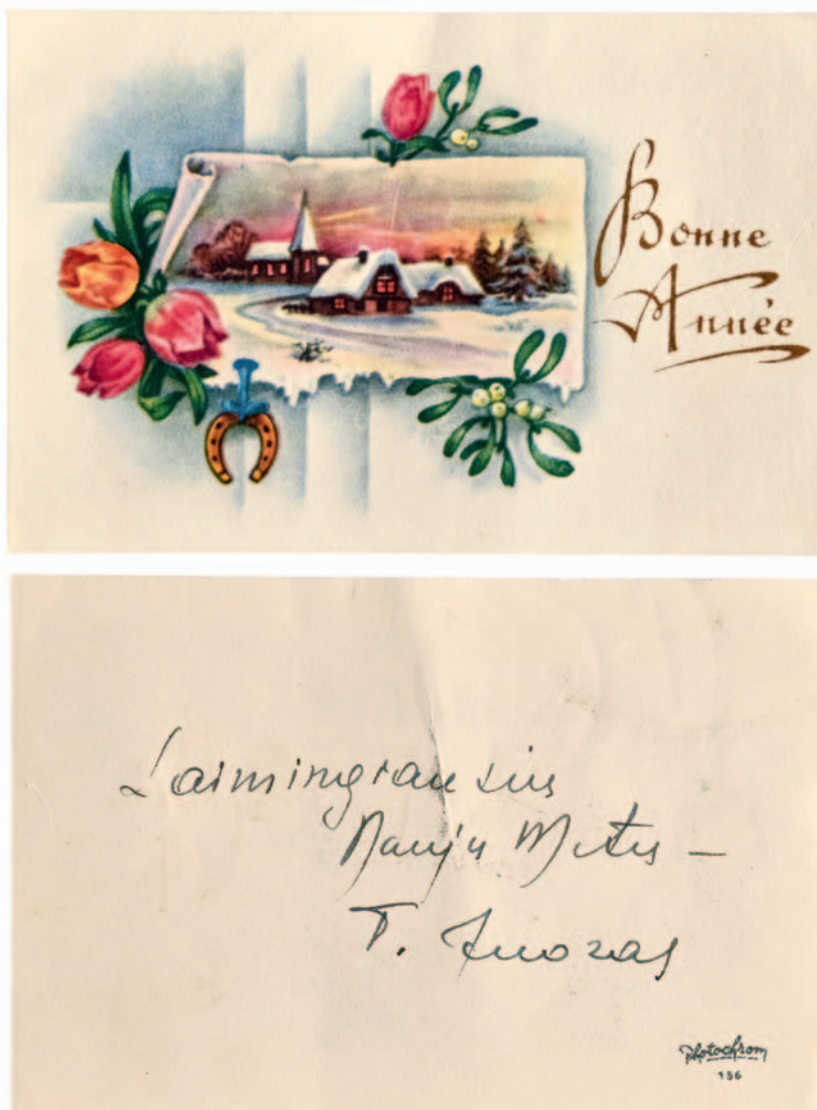 Bonne
Année
Laimingiausių
Naujų Metų –
T. Juozas
Photochrom
156